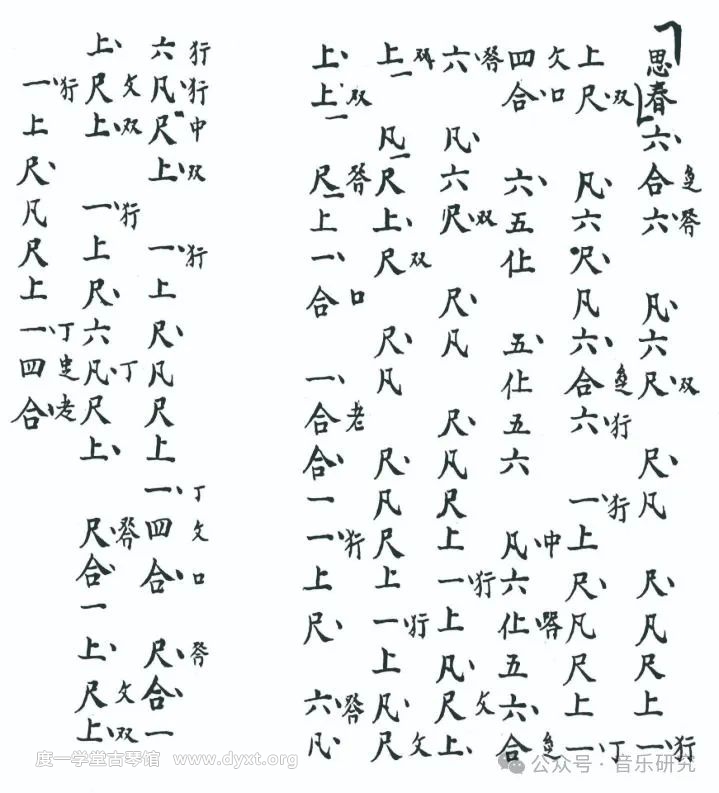 「思春」
六、合六、凡、六尺、双尺、凡尺、凡尺上一、行
上尺、双凡、六尺、凡六、合六、行一、行上尺、凡尺上一、丁
四文合、口六、五仩五、仩五六凡、中六仩、五六、合
六、凡、六尺、双尺、凡尺、凡尺上一、行上凡、尺文上、
上凡尺上、尺双尺、凡尺、凡尺上一、行上凡、尺文
上、上、双尺上一、合口一、合老合、一一、行上尺、六、凡、
六行凡、行尺中上、双一、行上尺、凡尺上一、丁四文合、口尺、合、一
上、尺文上、双一、行上尺、六凡、丁尺上、尺、合、一上、尺文上、双
一、行上尺、凡尺上一、丁四合、老
度一学堂古琴馆 www.dyxt.org
公众号·音乐研究